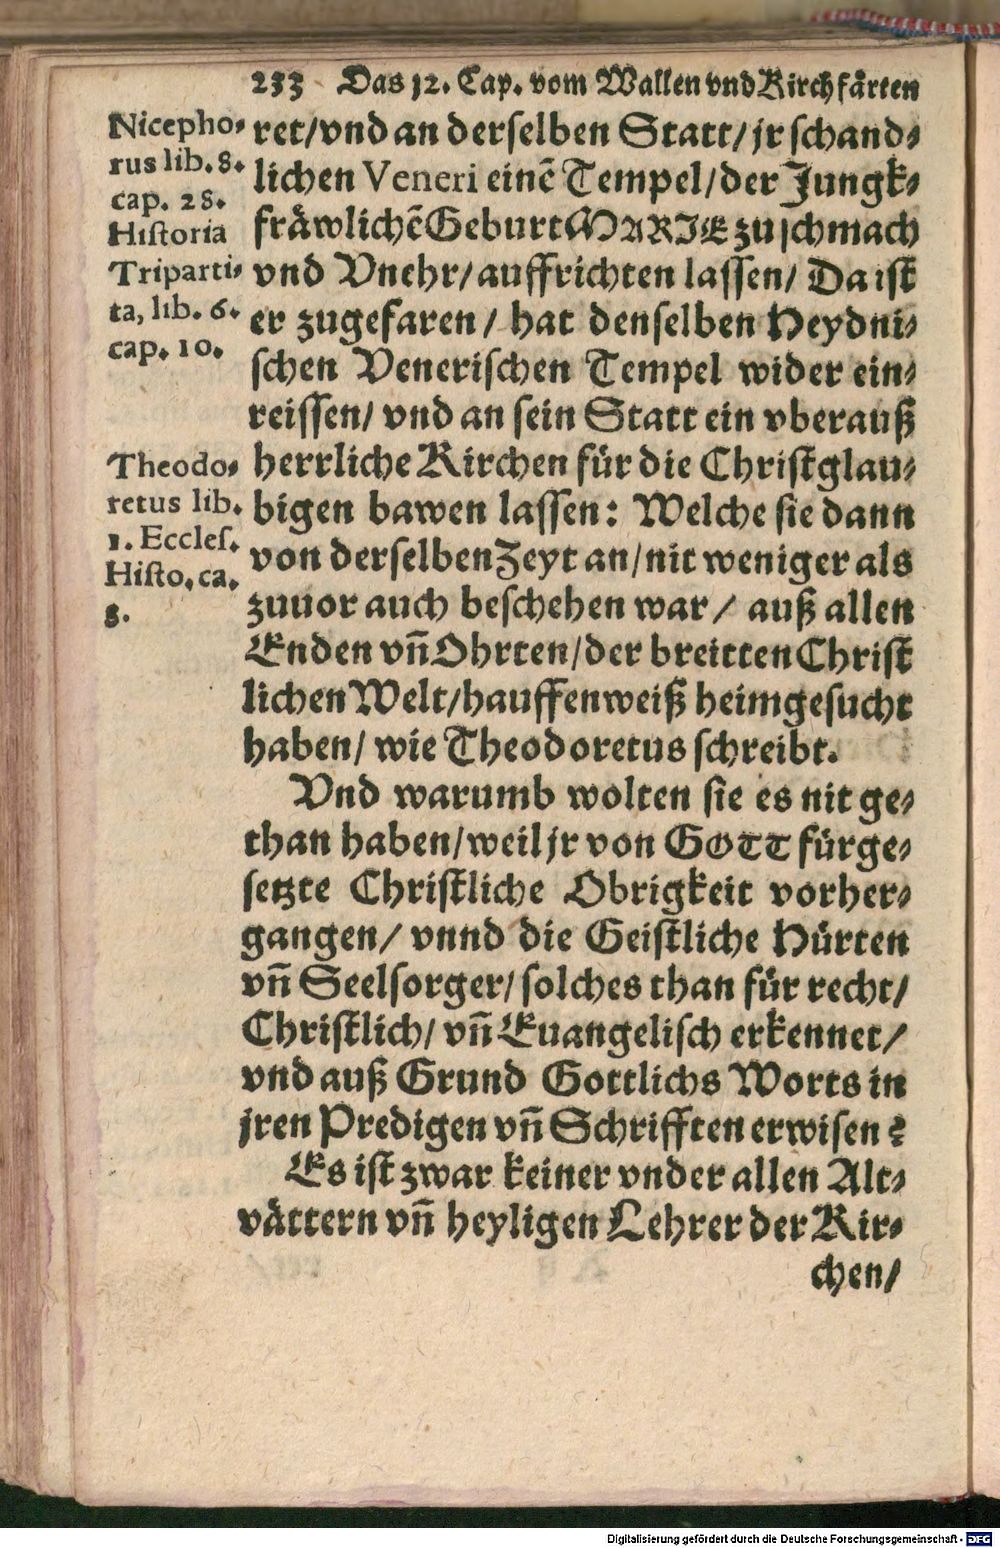 233 Das 12. Cap. vom Wallen vnd Kirchfårten
Nicepho⸗
rus lib. 8.
cap. 28.
Historia
Triparti⸗
ta, lib. 6.
cap. 10.
Theodo⸗
retus lib.
1. Eccles.
Histo. ca.
8.
ret/vnd an derselben Statt/jr schand⸗
lichen Veneri einē Tempel/der Jungk⸗
fråwlichē Geburt MARIE zu schmach
vnd Vnehr/auffrichten lassen/ Da ist
er zugefaren/ hat denselben Heydni⸗
schen Venerischen Tempel wider ein⸗
reissen/ vnd an sein Statt ein vberauß
herrliche Kirchen für die Christglau⸗
bigen bawen lassen: Welche sie dann
von derselben Zeyt an/nit weniger als
zuuor auch beschehen war/ auß allen
Enden vñ Ohrten/der breitten Christ
lichen Welt/hauffenweiß heimgesucht
haben/ wie Theodoretus schreibt.
Vnd warumb wolten sie es nit ge⸗
than haben/weil jr von GOTT fürge⸗
setzte Christliche Obrigkeit vorher⸗
gangen/ vnnd die Geistliche Hürten
vñ Seelsorger/solches than für recht/
Christlich/ vñ Euangelisch erkennet/
vnd auß Grund Gottlichs Worts in
jren Predigen vñ Schrifften erwisen?
Es ist zwar keiner vnder allen Alt⸗
våttern vñ heyligen Lehrer der Kir⸗
chen/
Digitalisierung gefördert durch die Deutsche Forschungsgemeinschaft - DFG